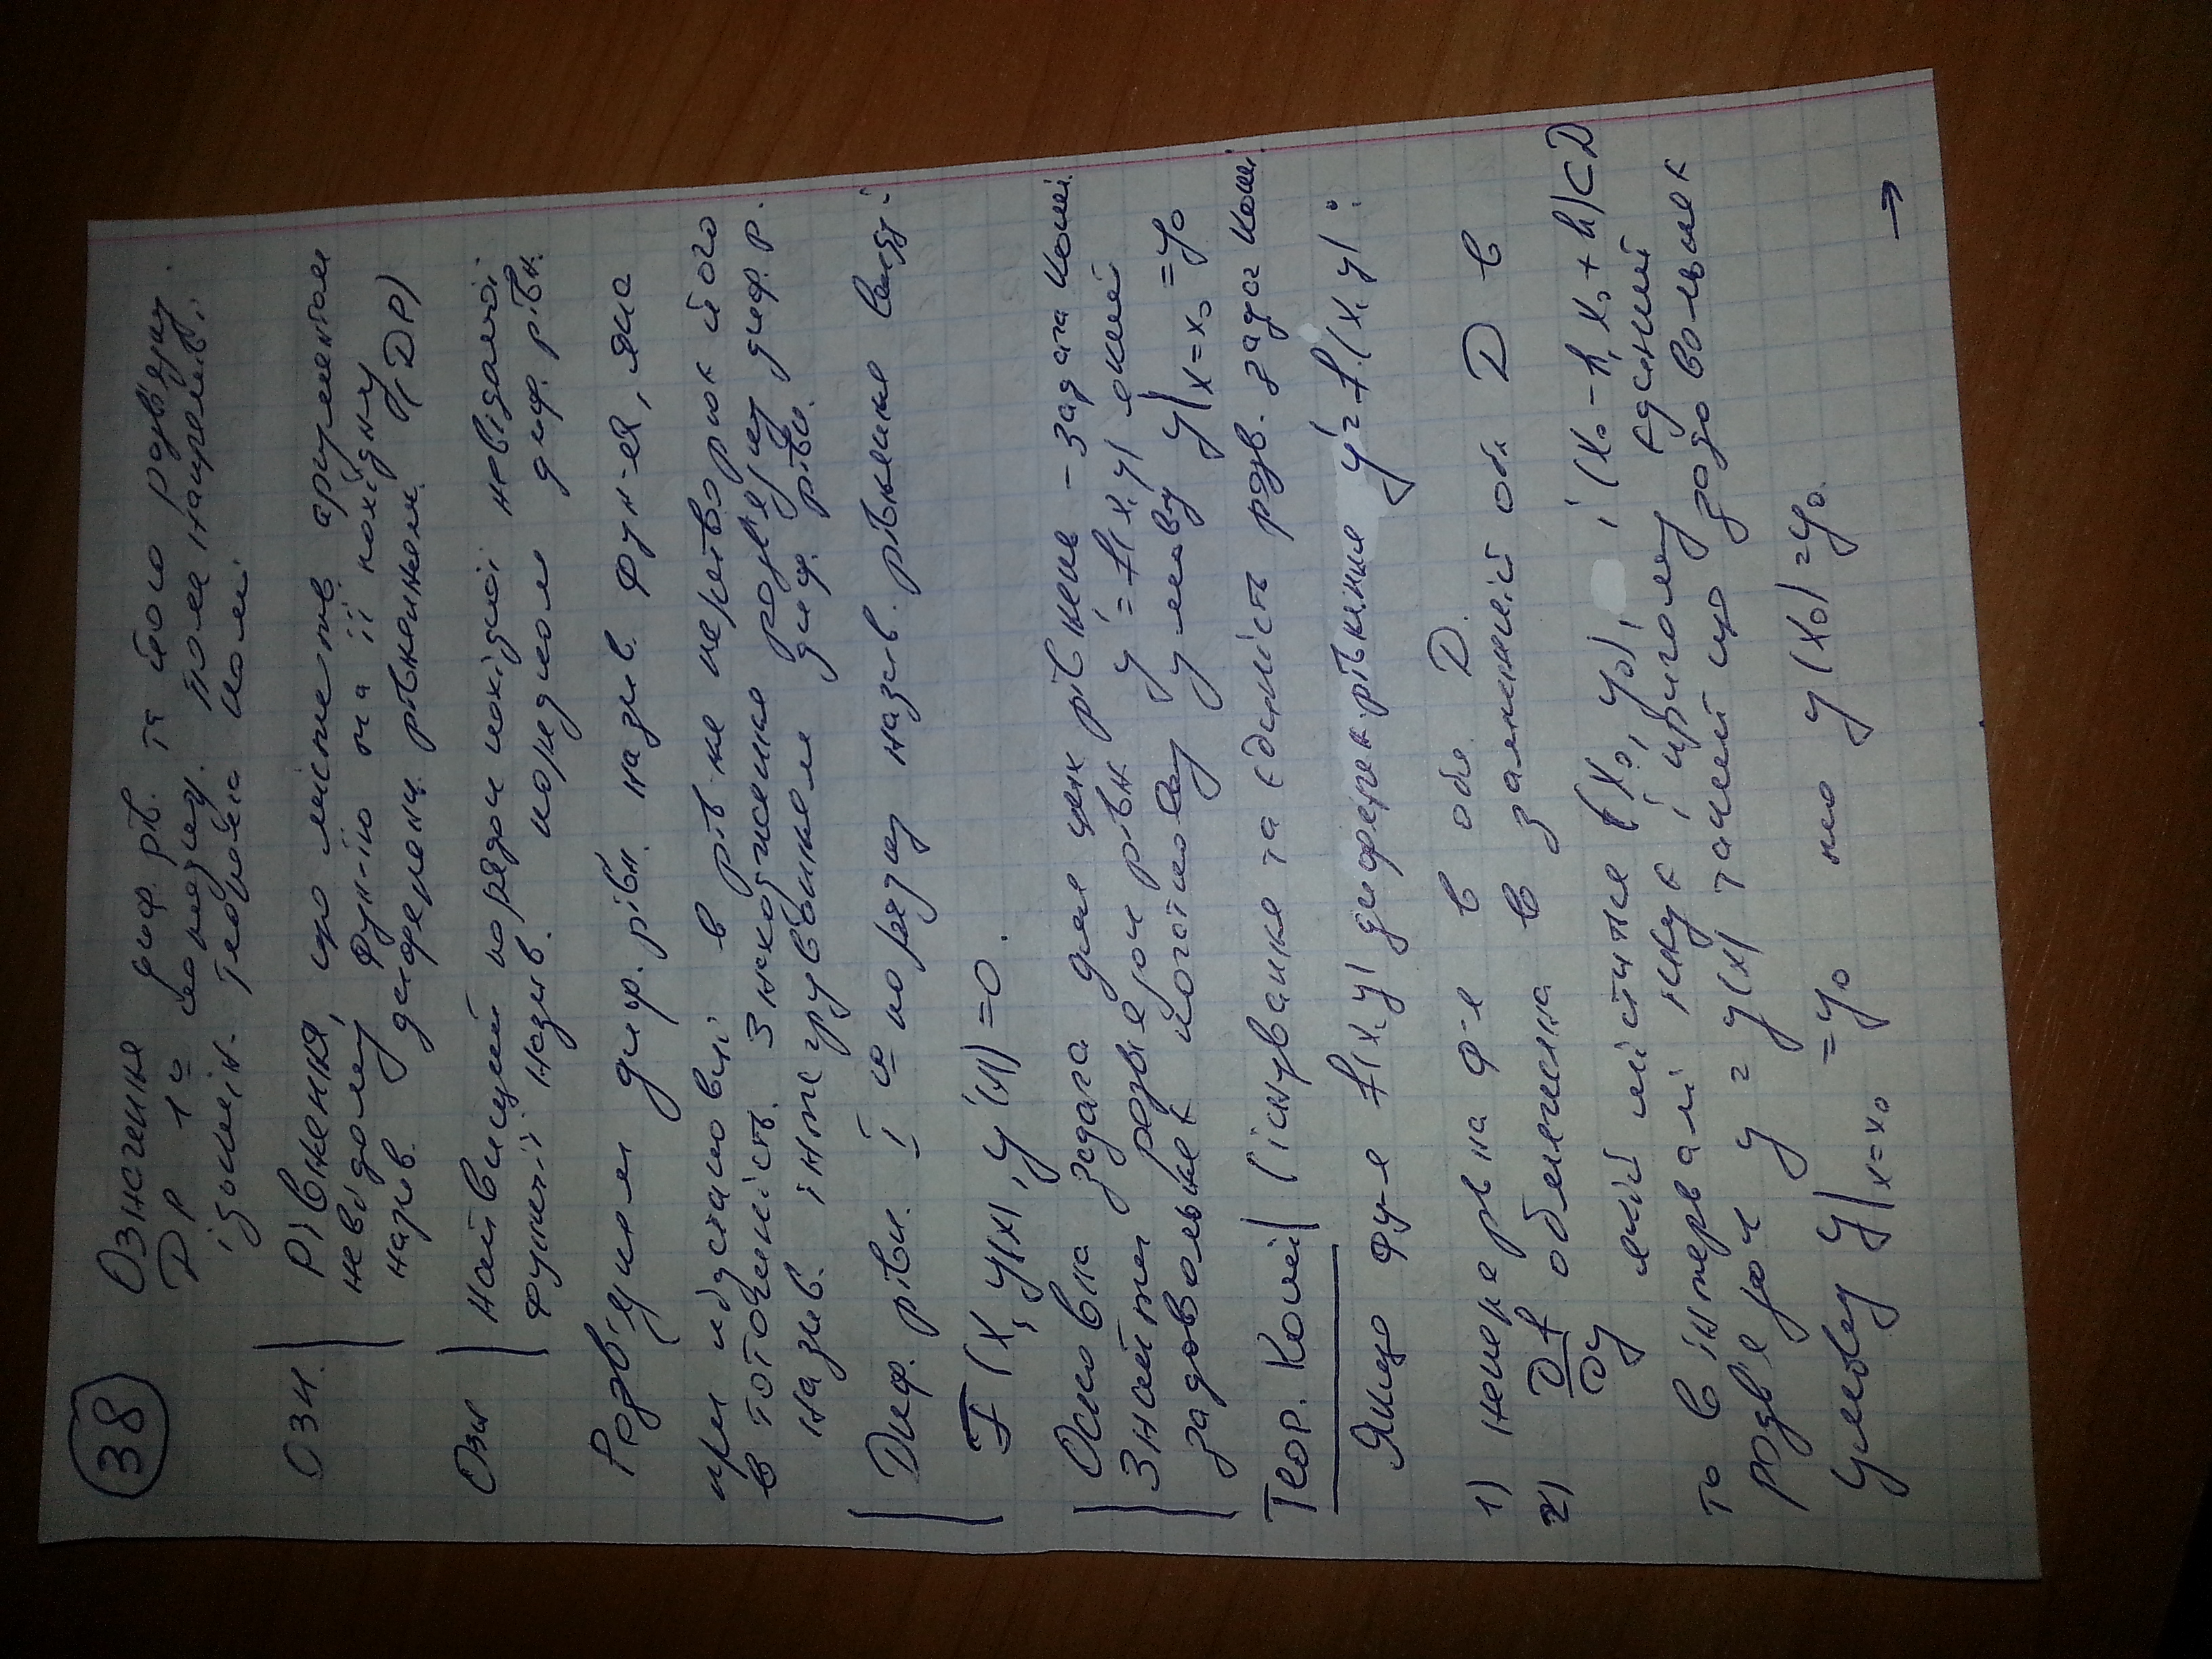 38
Означення диф. рів. та його розв'язку.
ДР 1го порядку. Поле напрямів і
ізоклін. Теорема Коші
Озн. Рівняння, що містить аргументом
невідому фун-їю та її похідну
назив. диференц. рівнянням. (ДР)
Озн Найвищий порядок похідної невідомої
функції назив. порядком диф. рівн.
Розв'язком диф. рівн. назив. фун-ія, яка
при підстановці в рів-ня перетворює його
в тотожність. Знаходження розв'язку диф. р.
назив. інтегруванням диф. рівн.
Диф. рівн. I го порядку назив. рівняння виду:
F(x, y(x), y'(x)) = 0.
Основна задача для цих рівнянь - задача Коші.
Знайти розв'язок рівн y' = f(x, y) який
задовольняє початкову умову y|x=x₀ = y₀
Теор. Коші (існування та єдиність розв. задач Коші
Якщо фу-я f(x, y) диферен. рівняння y' = f(x, y) :
1) неперервна ф-я в обл. D.
2) ∂f/∂y обмежена в замкненій обл D в
якій міститься (x₀, y₀), і (x₀ - h, x₀ + h) ⊂ D
то в інтервалі існує і причому єдиний
розв'язок y = y(x) такий що задовольняє
умову y|x=x₀ = y₀ то y(x₀) = y₀.
→